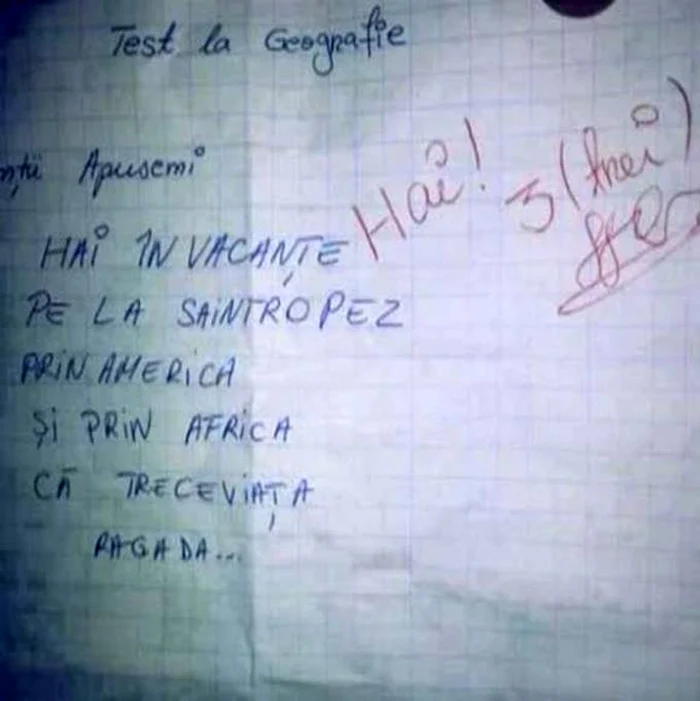 Test la Geografie
nții Apuseni
HAI ÎN VACANȚE
PE LA SAINTROPEZ
PRIN AMERICA
ȘI PRIN AFRICA
CĂ TRECEVIAȚA
RAGADA...
Hai!
3 (trei)